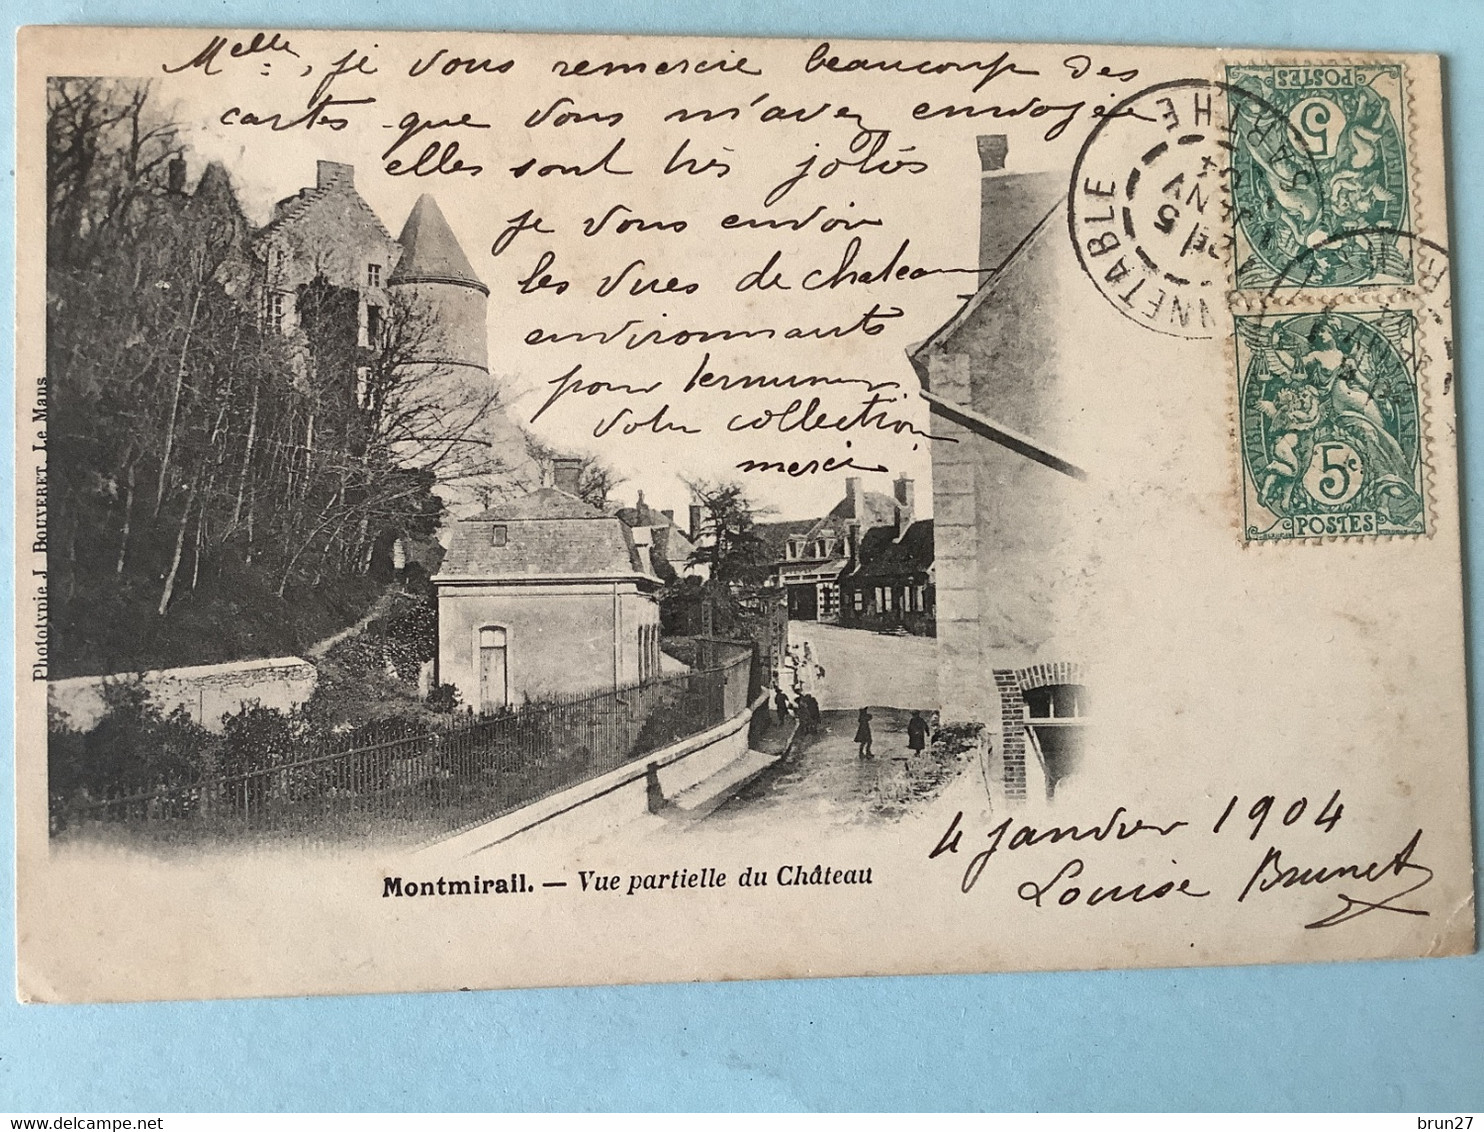 Melle, je vous remercie beaucoup des
cartes que vous m'avez envoyée
elles sont très jolies
je vous envoie
les vues de chateau
environnants
pour
votre collection
merci
4 Janvier 1904
Louise Brunet
Montmirail. — Vue partielle du Château
Phototypie J. BOUVERET Le Mans
POSTES
5
5c.
POSTES
NNETABLE
SARTHE
5
brun27